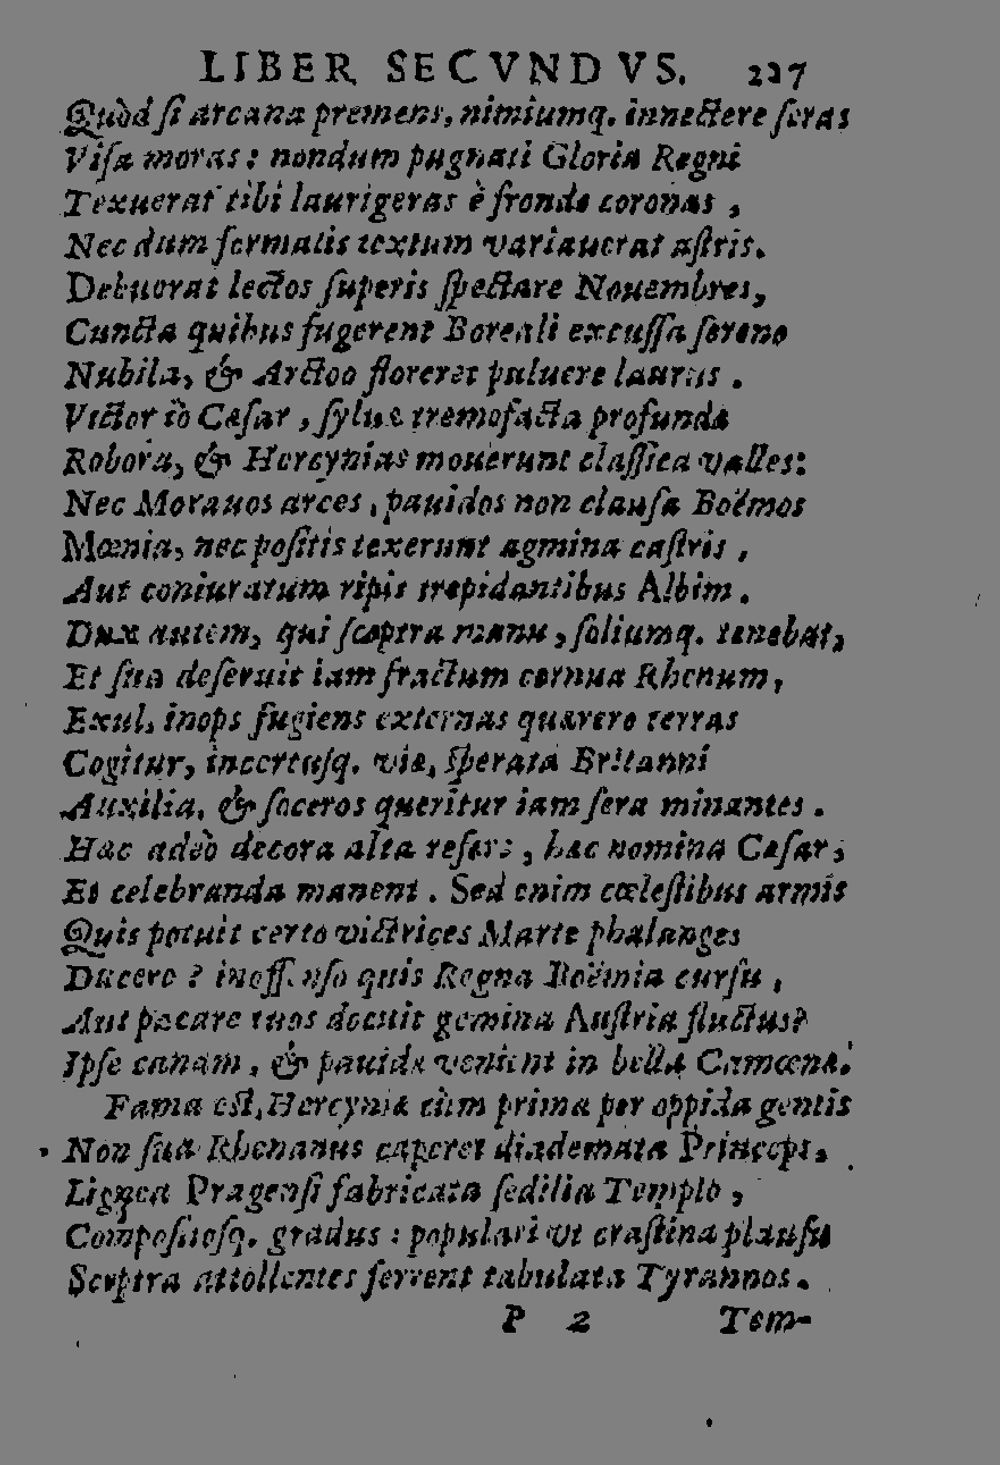 LIBER SECVNDVS. 227
Quòd ſi arcana premens, nimiumq. innectere ſeras
Viſa moras: nondum pugnati Gloria Regni
Texuerat tibi laurigeras è fronde coronas,
Nec dum formatis textum variauerat aſtris.
Debuerat lectos ſuperis ſpectare Nouembres,
Cuncta quibus fugerent Boreali excuſſa ſereno
Nubila, & Arctoo floreret puluere laurus.
Victor iò Cæſar, ſyluæ tremofacta profundæ
Robora, & Hercynias mouerunt claſſica valles:
Nec Morauos arces, pauidos non clauſa Boëmos
Mœnia, nec poſitis texerunt agmina caſtris,
Aut coniuratum ripis trepidantibus Albim.
Dux autem, qui ſceptra manu, ſoliumq. tenebat,
Et ſua deſeruit iam fractum cornua Rhenum,
Exul, inops fugiens externas quærere terras
Cogitur, incertuſq. viæ, ſperata Britanni
Auxilia, & ſoceros queritur iam ſera minantes.
Hac adeò decora alta refers, hæc nomina Cæſar,
Et celebranda manent. Sed enim cœleſtibus armis
Quis potuit certo victrices Marte phalanges
Ducere? inoffenſo quis Regna Boëmia curſu,
Aut pacare tuos docuit gemina Auſtria fluctus?
Ipſe canam, & pauidæ venient in bella Camœnæ.
Fama eſt, Hercyniæ cùm prima per oppida gentis
Non ſua Rhenanus caperet diademata Princeps,
Lignea Pragenſi fabricata ſedilia Templo,
Compoſitoſq. gradus: populari vt craſtina plauſu
Sceptra attollentes ferrent tabulata Tyrannos.
P 2 Tem-